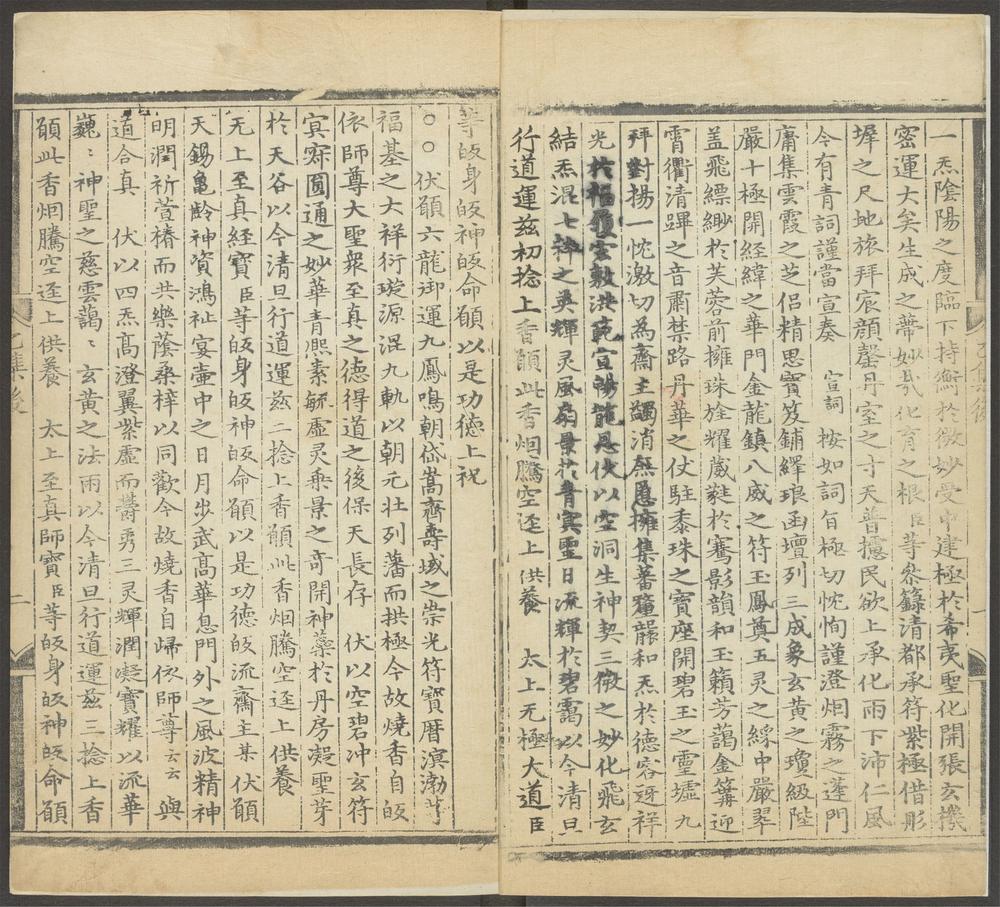 一炁陰陽之度臨下持衡於微妙受中建極於希夷聖化開張玄機
密運大矣生成之蒂妙㢤化育之根臣等忝籙清都承符紫極借彤
墀之尺地旅拜宸顔罄丹室之寸天普攄民欲上承化雨下沛仁風
今有青詞謹當宣奏 宣詞 按如詞旨極切忱恂謹澄烟霧之蓬門
庸集雲霞之芝侣精思寶笈鋪繹琅函壇列三成象玄黄之瓊級陛
嚴十極開経緯之華門金龍鎮八威之符玉鳳奠五灵之綵中嚴翠
盖飛縹緲於芙蓉前擁珠旌耀葳蕤於鶱影韻和玉籟芳藹金篝迎
霄衢清蹕之音肅禁路丹華之仗駐黍珠之寶座開碧玉之靈墟九
拜對揚一忱激切為齋主蠲消愆擁集蕃釐和炁於德容迓祥
光於福宣伏以空洞生神契三微之妙化飛玄
結炁混七之英輝灵風扇景於青㝠聖日流輝於碧靄以今清旦
行道運兹初捻上香願此香烟騰空逕上供養 太上无極大道臣
等皈身皈神皈命願以是功徳上祝
○○ 伏願六龍御運九鳳鳴朝岱嵩齊壽域之崇光符寳暦溟渤等
福基之大祥衍璇源混九軌以朝元壮列藩而拱極今故燒香自皈
依師尊大聖衆至真之徳得道之後保天長存 伏以空碧冲玄符
㝠寂圓通之妙華青凞素毓虚灵乗景之竒開神蘂於丹房凝聖芽
於天谷以今清旦行道運兹二捻上香願此香烟騰空逕上供養
无上至真経寶臣等皈身皈神皈命願以是功徳皈流齋主某伏願
天錫亀齡神資鴻祉宴壷中之日月步武髙華息門外之風波精神
明潤祈萱椿而共樂蔭桒梓以同歡今故燒香自歸依師尊云云與
道合真 伏以四炁髙澄翼紫虚而欝秀三灵輝潤凝寶耀以流華
巍〻神聖之慈雲藹〻玄黄之法雨以今清旦行道運兹三捻上香
願此香烟騰空逕上供養 太上至真師寶臣等皈身皈神皈命願
二